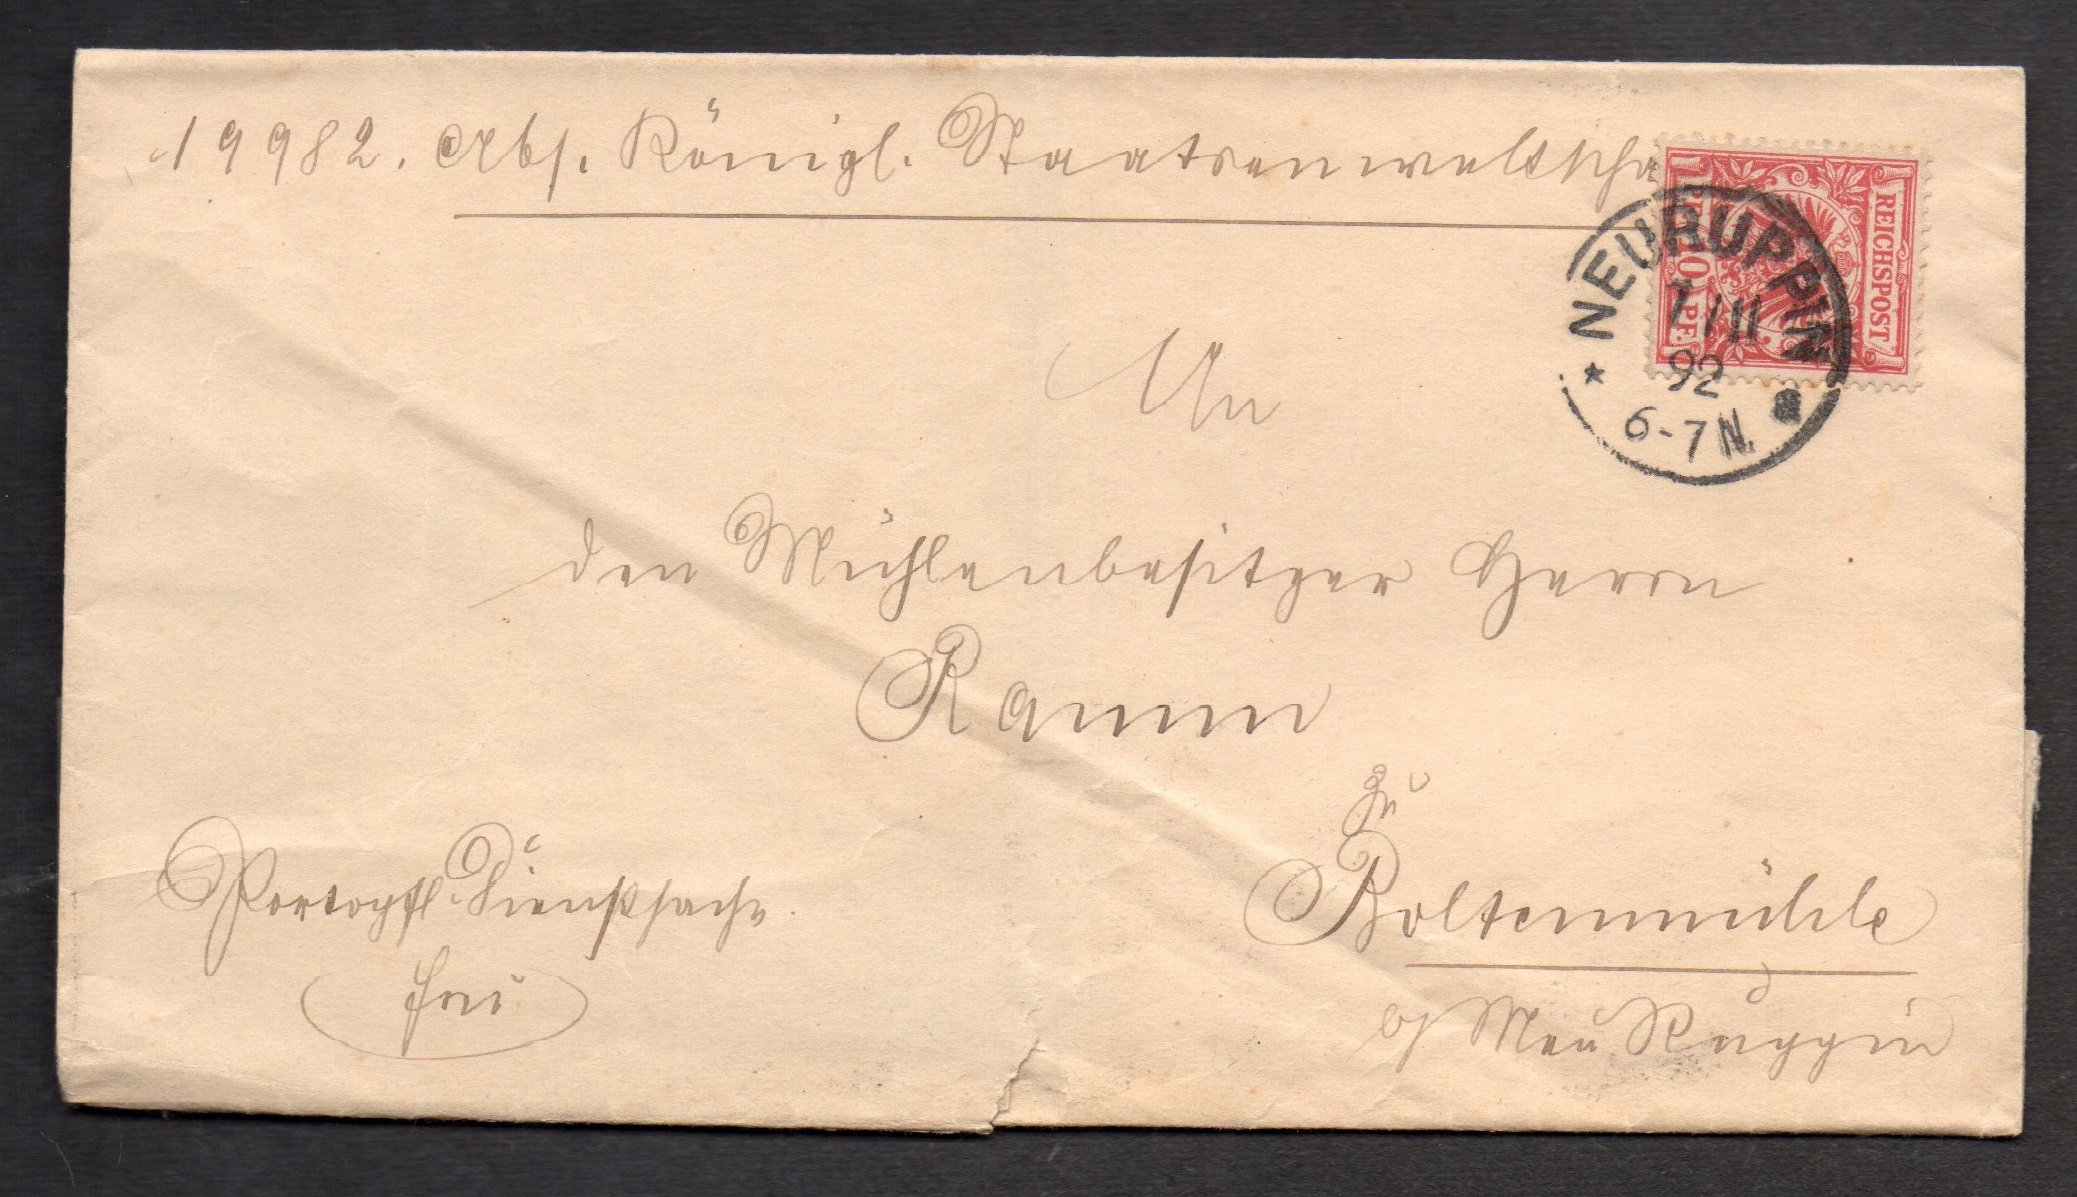 19982. Abs. Königl. Staatsanwaltscha
REICHSPOST
10 PF.
NEURUPPIN
92
6-7N.
a
An
den Mühlenbesitzer Herrn
Ramm
zu
Boltenmühle
b/ Neu Ruppin
Portopfl. Dienstsache
frei